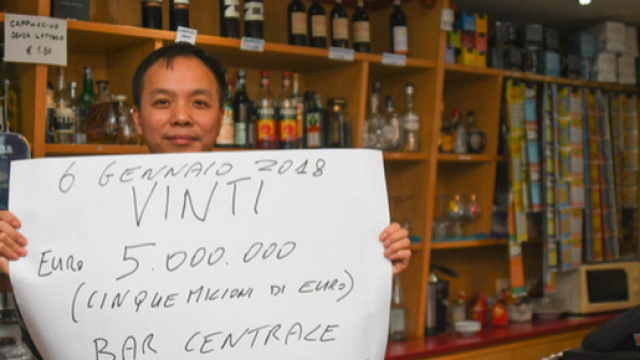 CAPPUCCINO
SENZA LATTOSIO
€ 1,30
6 GENNAIO 2018
VINTI
EURO 5.000.000
(CINQUE MILIONI DI EURO)
BAR CENTRALE